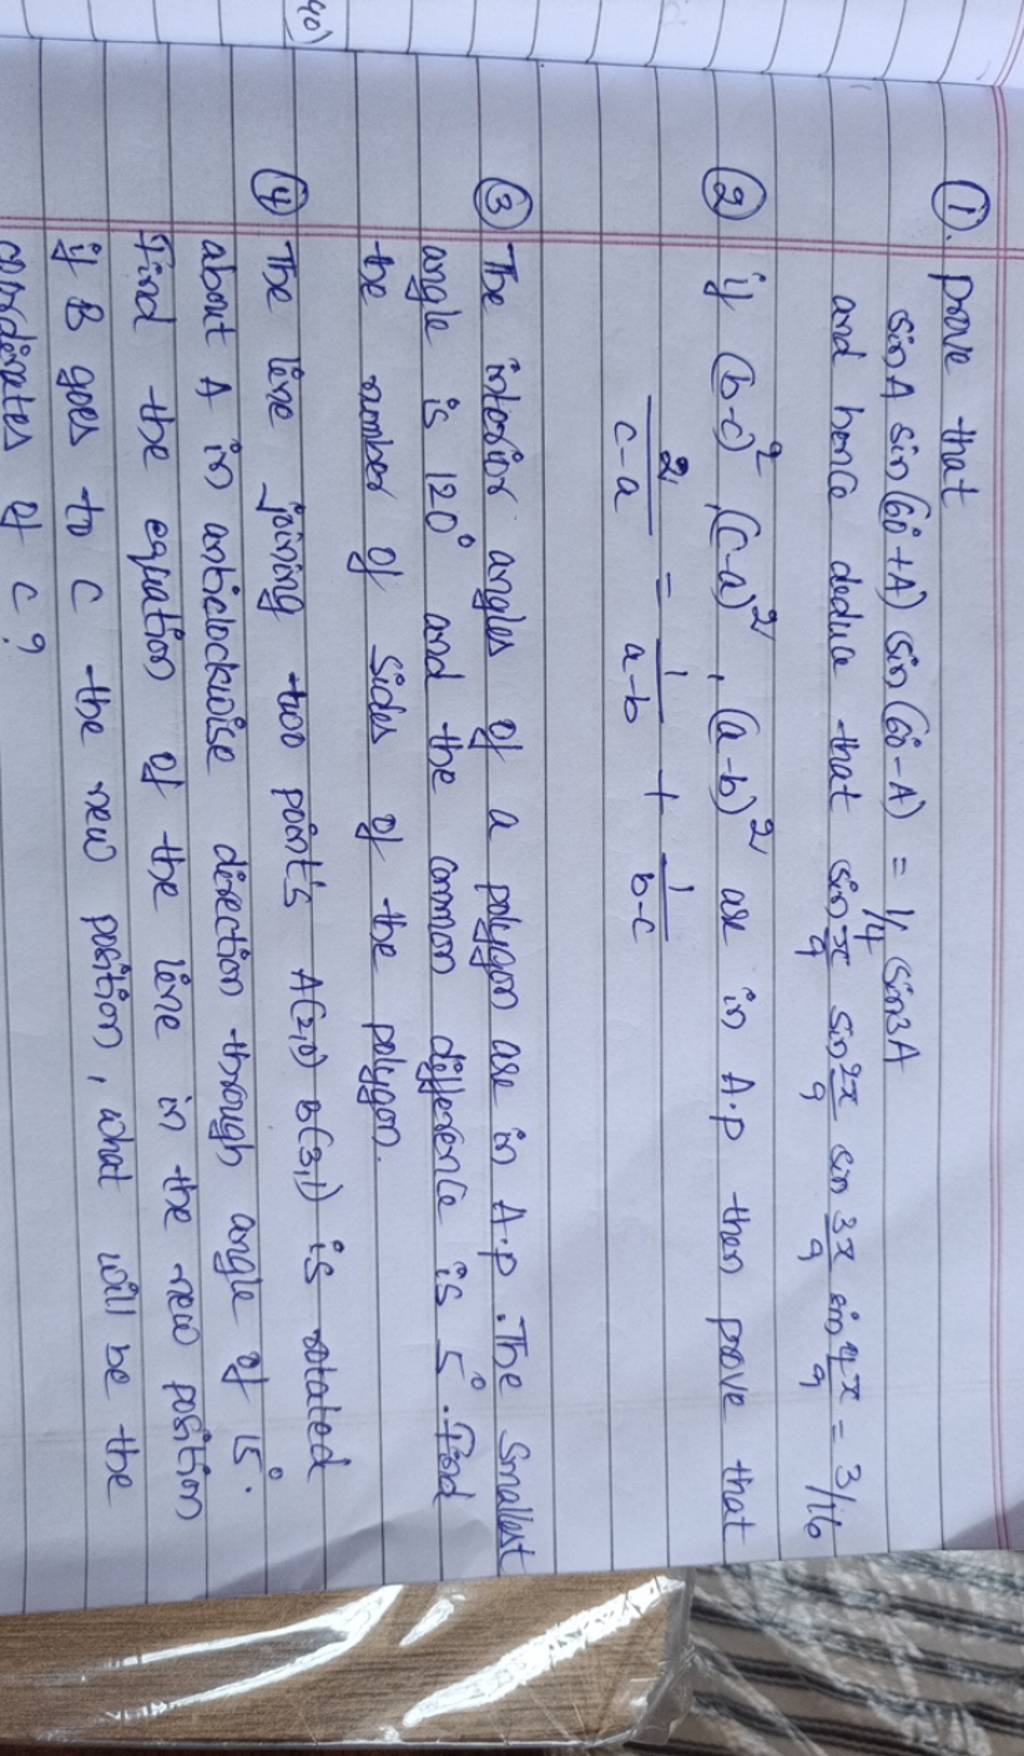 40)
①. prove that
sinA sin(60°+A) sin(60°-A) = 1/4 sin3A
and hence deduce that sin π/9 sin 2π/9 sin 3π/9 sin 4π/9 = 3/16
② if (b-c)², (c-a)², (a-b)² are in A.P then prove that
2/c-a = 1/a-b + 1/b-c
③ The interior angles of a polygon are in A.P. The smallest
angle is 120° and the common difference is 5°. Find
the number of sides of the polygon.
④ The line joining two points A(2,0) B(3,1) is rotated
about A in anticlockwise direction through angle of 15°.
Find the equation of the line in the new position
if B goes to C the new position, what will be the
coordinates of C?